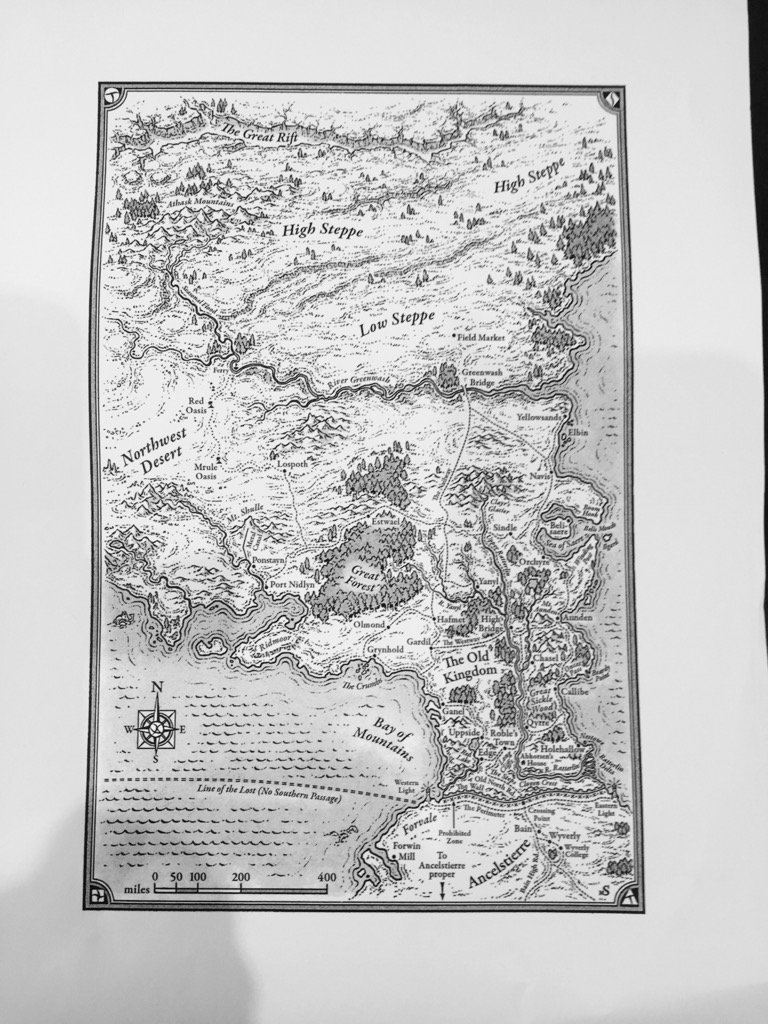 The Great Rift
High Steppe
Athask Mountains
High Steppe
Low Steppe
Field Market
Greenwash
Bridge
River Greenwash
Ferry
Red
Oasis
Yellowsands
Elbin
Northwest
Desert
Mrule
Oasis
Lospoth
Navis
Clayr's
Glacier
Mt. Shulle
Sindle
Beli-
saere
Estwael
Orchyre
Ponstayn
Great
Forest
Port Nidlyn
Yanyl
R. Yanyl
Olmond
Hafmet
High
Bridge
Aunden
Ridmoor
Gardil
The Westway
Grynhold
The Old
Kingdom
Chasel
The Crumbs
Callibe
Great
Sickle
Wood
Qyrre
N
W
E
S
Bay of
Mountains
Ganel
Uppside
Roble's
Town
Edge
Holehallow
Abhorsen's
House
Line of the Lost (No Southern Passage)
Western
Light
Old South Rd.
The Wall
Eastern
Light
The Perimeter
Crossing
Point
Forvale
Prohibited
Zone
Bain
Wyverly
Wyverly
College
Forwin
Mill
To
Ancelstierre
proper
Ancelstierre
Bain High Rd.
0 50 100 200 400
miles